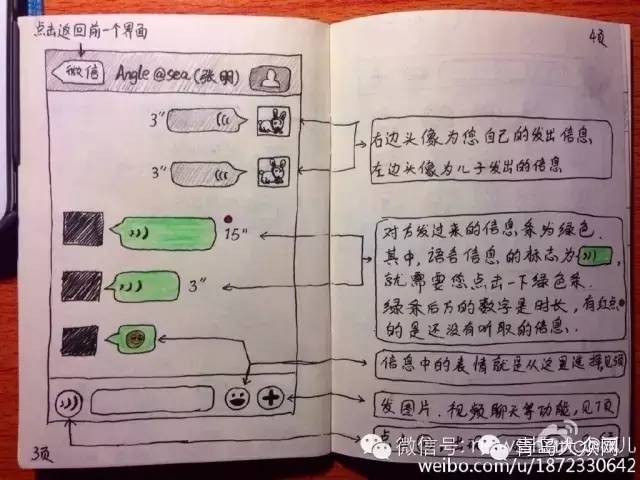 点击返回前一个界面
微信
Angle@sea(张明)
3"
3"
15"
3"
3页
4页
右边头像为您自己的发出信息
左边头像为儿子发出的信息
对方发过来的信息条为绿色.
其中,语音信息的标志为 ,
就需要您点击一下绿色条.
绿条后方的数字是时长,有红点
的是还没有听取的信息.
信息中的表情就是从这里选择,见5页
发图片.视频聊天等功能,见7页
微信号:
青岛大众网
weibo.com/u/1872330642